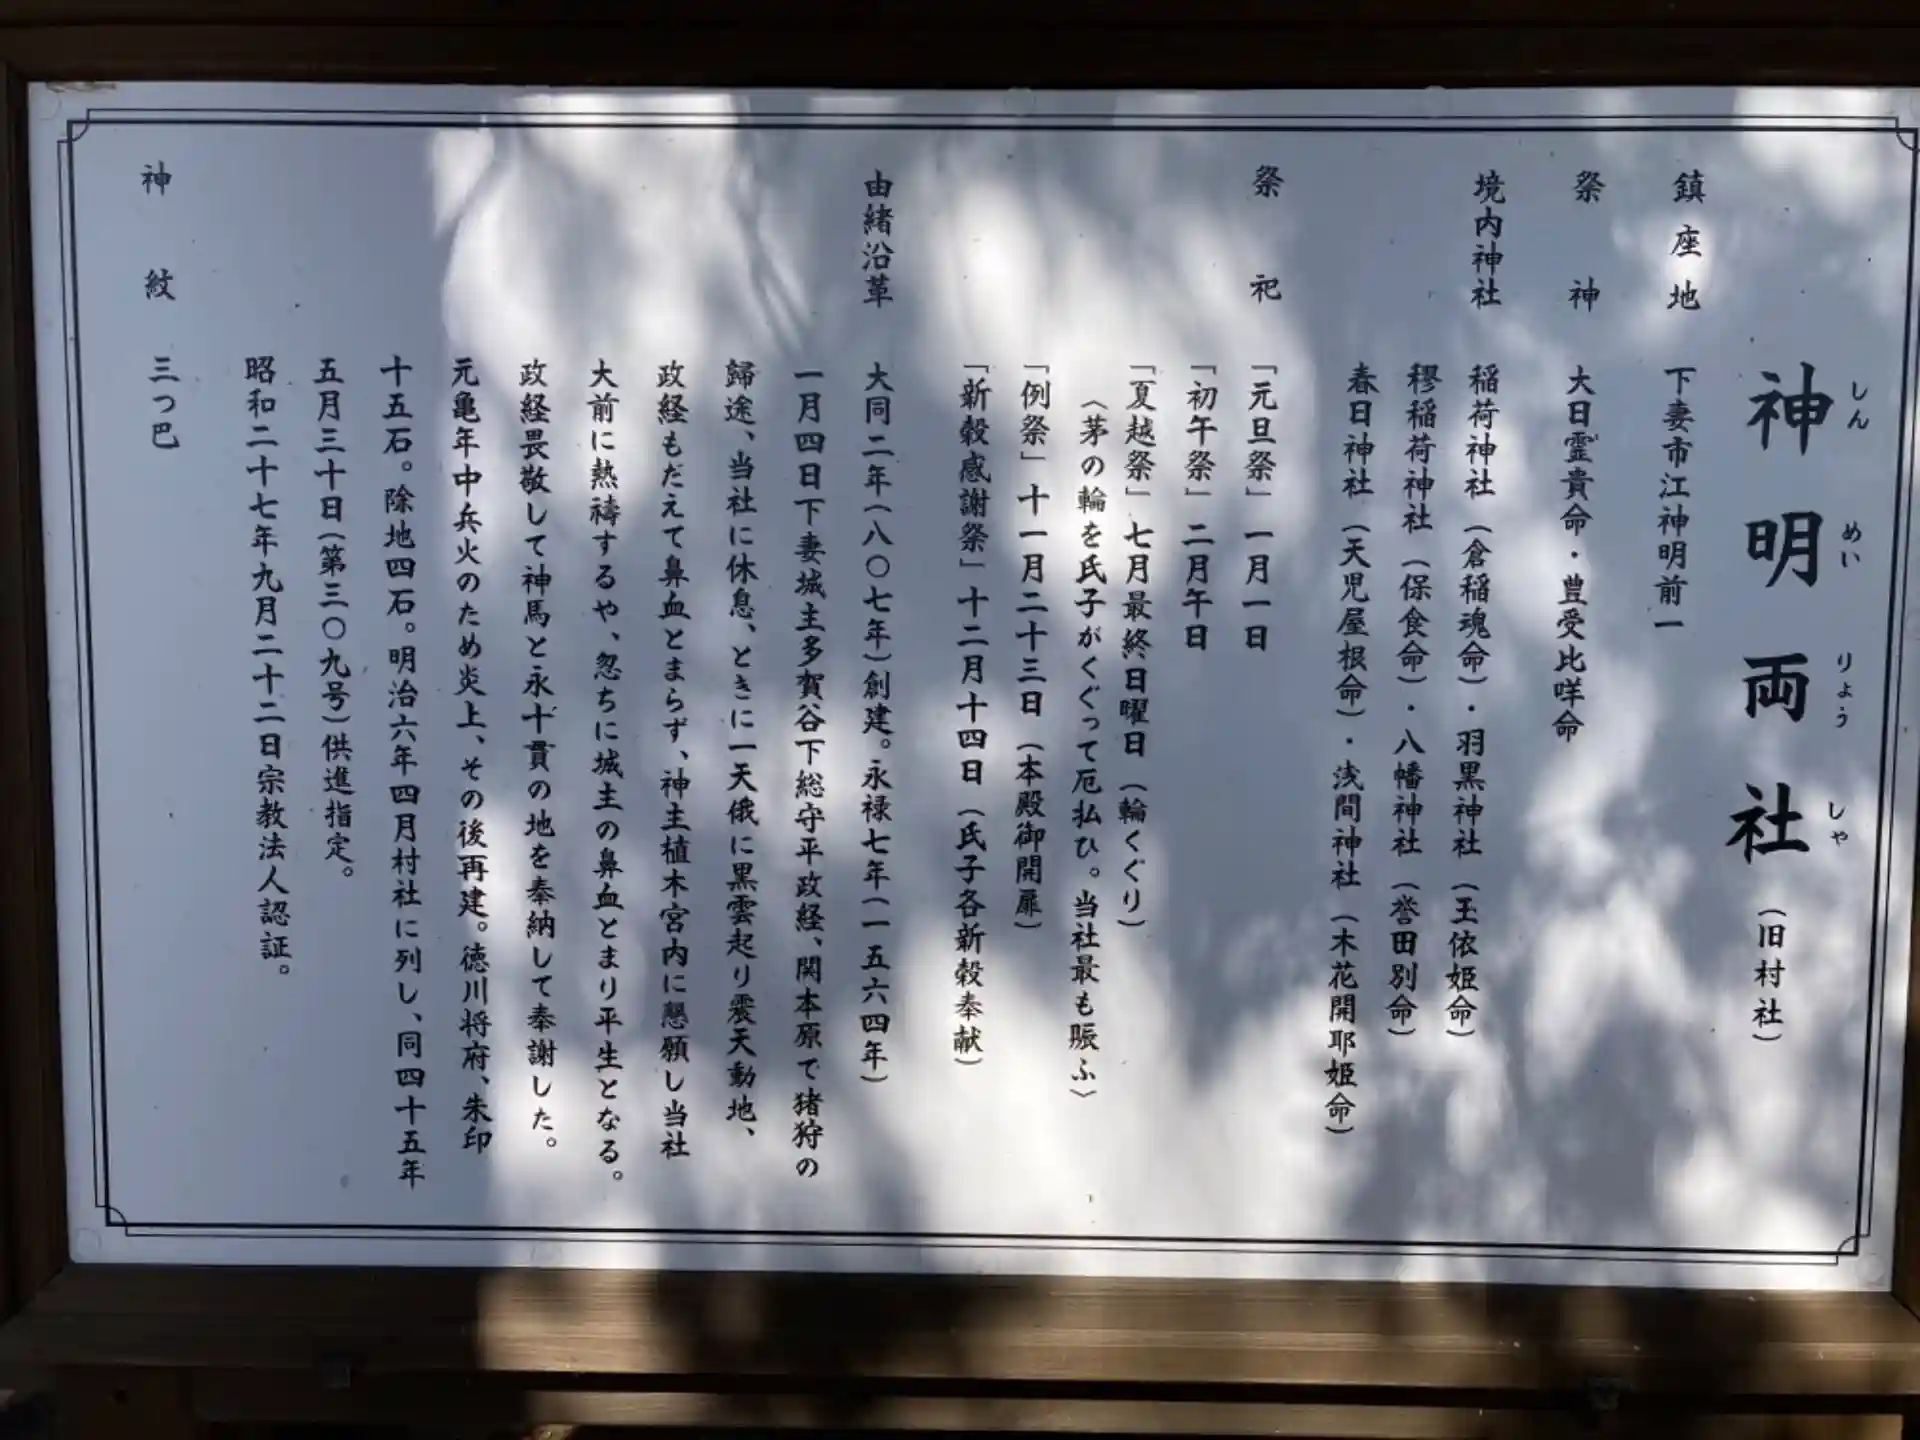 神明両社（旧村社）
しんめいりょうしゃ
鎮座地　下妻市江神明前一
祭神　大日霊貴命・豊受比咩命
境内神社　稲荷神社（倉稲魂命）・羽黒神社（玉依姫命）
穆稲荷神社（保食命）・八幡神社（誉田別命）
春日神社（天児屋根命）・浅間神社（木花開耶姫命）
祭祀　「元旦祭」一月一日
「初午祭」二月午日
「夏越祭」七月最終日曜日（輪くぐり）
〈茅の輪を氏子がくぐって厄払ひ。当社最も賑ふ〉
「例祭」十一月二十三日（本殿御開扉）
「新穀感謝祭」十二月十四日（氏子各新穀奉献）
由緒沿革　大同二年（八〇七年）創建。永禄七年（一五六四年）
一月四日下妻城主多賀谷下総守平政経、関本原で猪狩の
歸途、当社に休息、ときに一天俄に黒雲起り震天動地、
政経もだえて鼻血とまらず、神主植木宮内に懇願し当社
大前に熱禱するや、忽ちに城主の鼻血とまり平生となる。
政経畏敬して神馬と永十貫の地を奉納して奉謝した。
元亀年中兵火のため炎上、その後再建。徳川将府、朱印
十五石。除地四石。明治六年四月村社に列し、同四十五年
五月三十日（第三〇九号）供進指定。
昭和二十七年九月二十二日宗教法人認証。
神紋　三つ巴